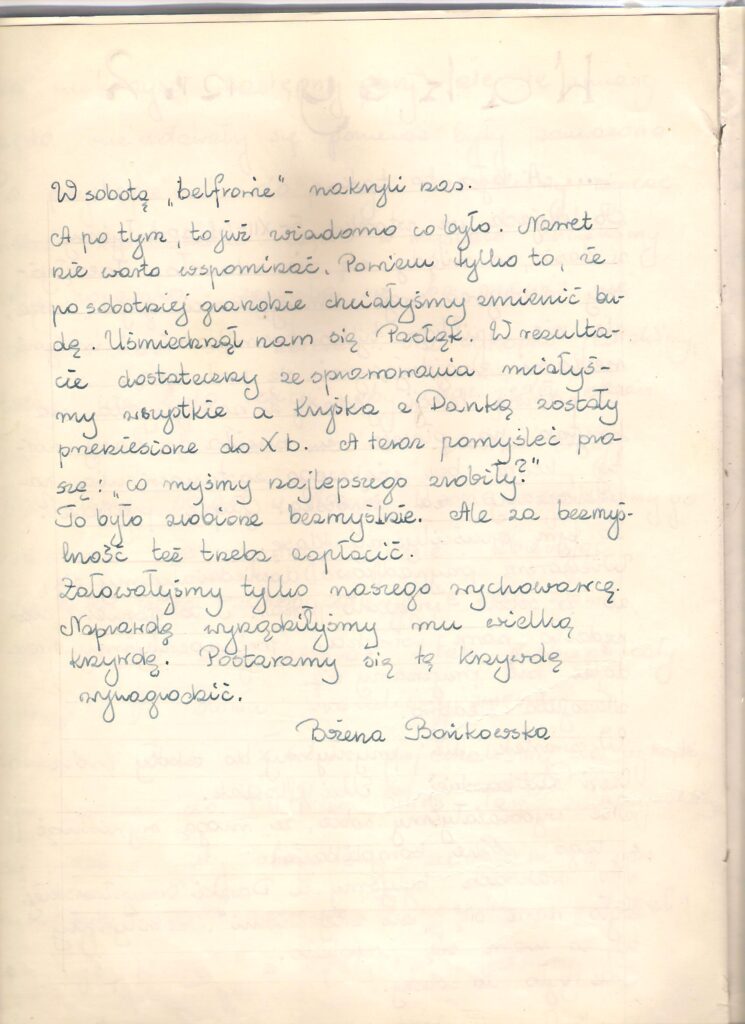 W sobotę „belfrowie" nakryli nas.
A po tym, to już wiadomo co było. Nawet
nie warto wspominać. Powiem tylko to, że
po sobotniej grandzie chciałyśmy zmienić bu-
dę. Uśmiechnął nam się Pasłęk. W rezulta-
cie dostateczny ze sprawowania miałyś-
my wszystkie a Kryśka z Danką zostały
przeniesione do X b. A teraz pomyśleć pro-
szę: „co myśmy najlepszego zrobiły?"
To było zrobione bezmyślnie. Ale za bezmyś-
lność też trzeba zapłacić.
Żałowałyśmy tylko naszego wychowawcę.
Naprawdę wyrządziłyśmy mu wielką
krzywdę. Postaramy się tę krzywdę
wynagrodzić.
Bożena Bońkowska